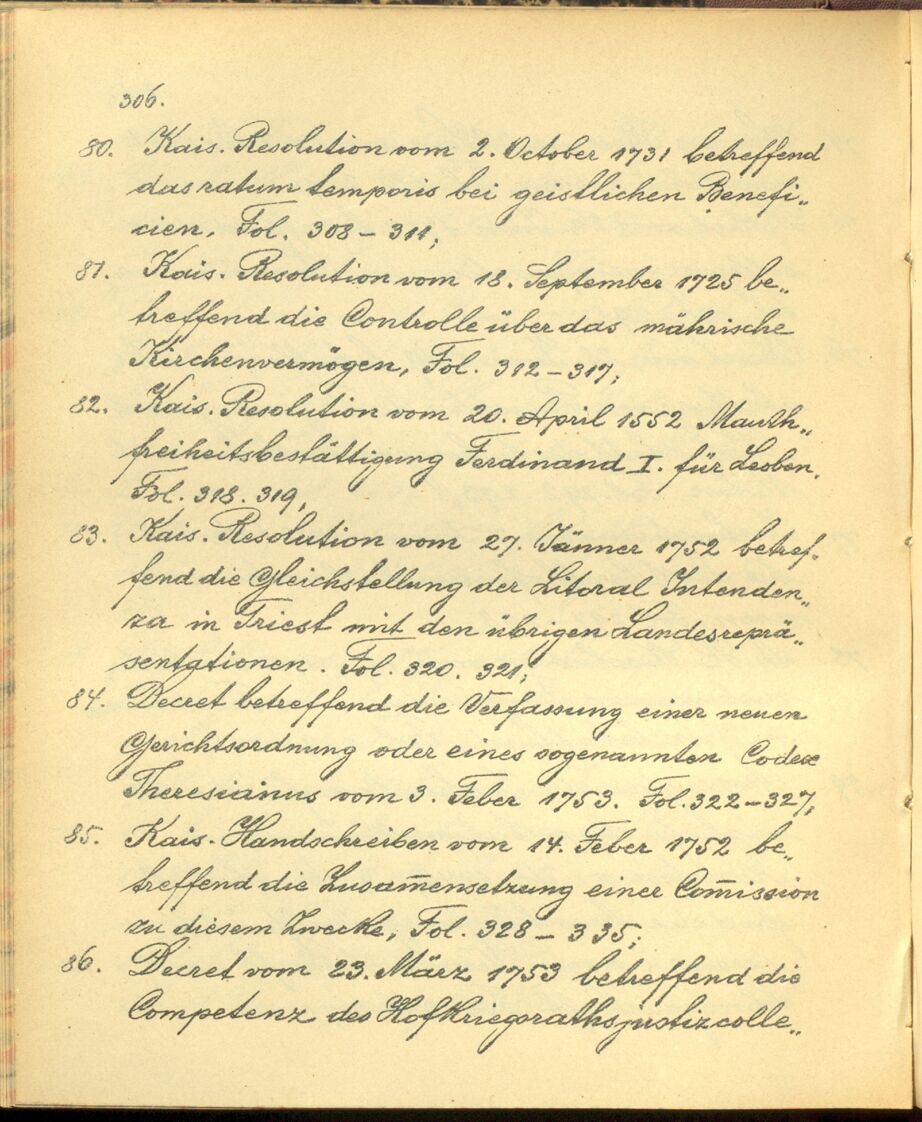 306.
80. Kais. Resolution vom 2. October 1731 betreffend
das ratum temporis bei geistlichen Benefi„
cien, Fol. 308 – 311;
81. Kais. Resolution vom 18. September 1725 be„
treffend die Controlle über das mährische
Kirchenvermögen, Fol. 312 – 317;
82. Kais. Resolution vom 20. April 1552 Mauth„
freiheitsbestättigung Ferdinand I. für Leoben,
Fol. 318. 319,
83. Kais. Resolution vom 27. Jänner 1752 betref-
fend die Gleichstellung der Litoral Intenden„
za in Triest mit den übrigen Landesreprä„
sentationen. Fol. 320. 321;
84. Decret betreffend die Verfassung einer neuen
Gerichtsordnung oder eines sogenannten Codex
Theresianus vom 3. Feber 1753. Fol. 322 – 327,
85. Kais. Handschreiben vom 14. Feber 1752 be„
treffend die Zusam̅ensetzung einer Com̅ission
zu diesem Zwecke, Fol. 328 – 335;
86. Decret vom 23. März 1753 betreffend die
Competenz des Hofkriegsrathsjustizcolle„